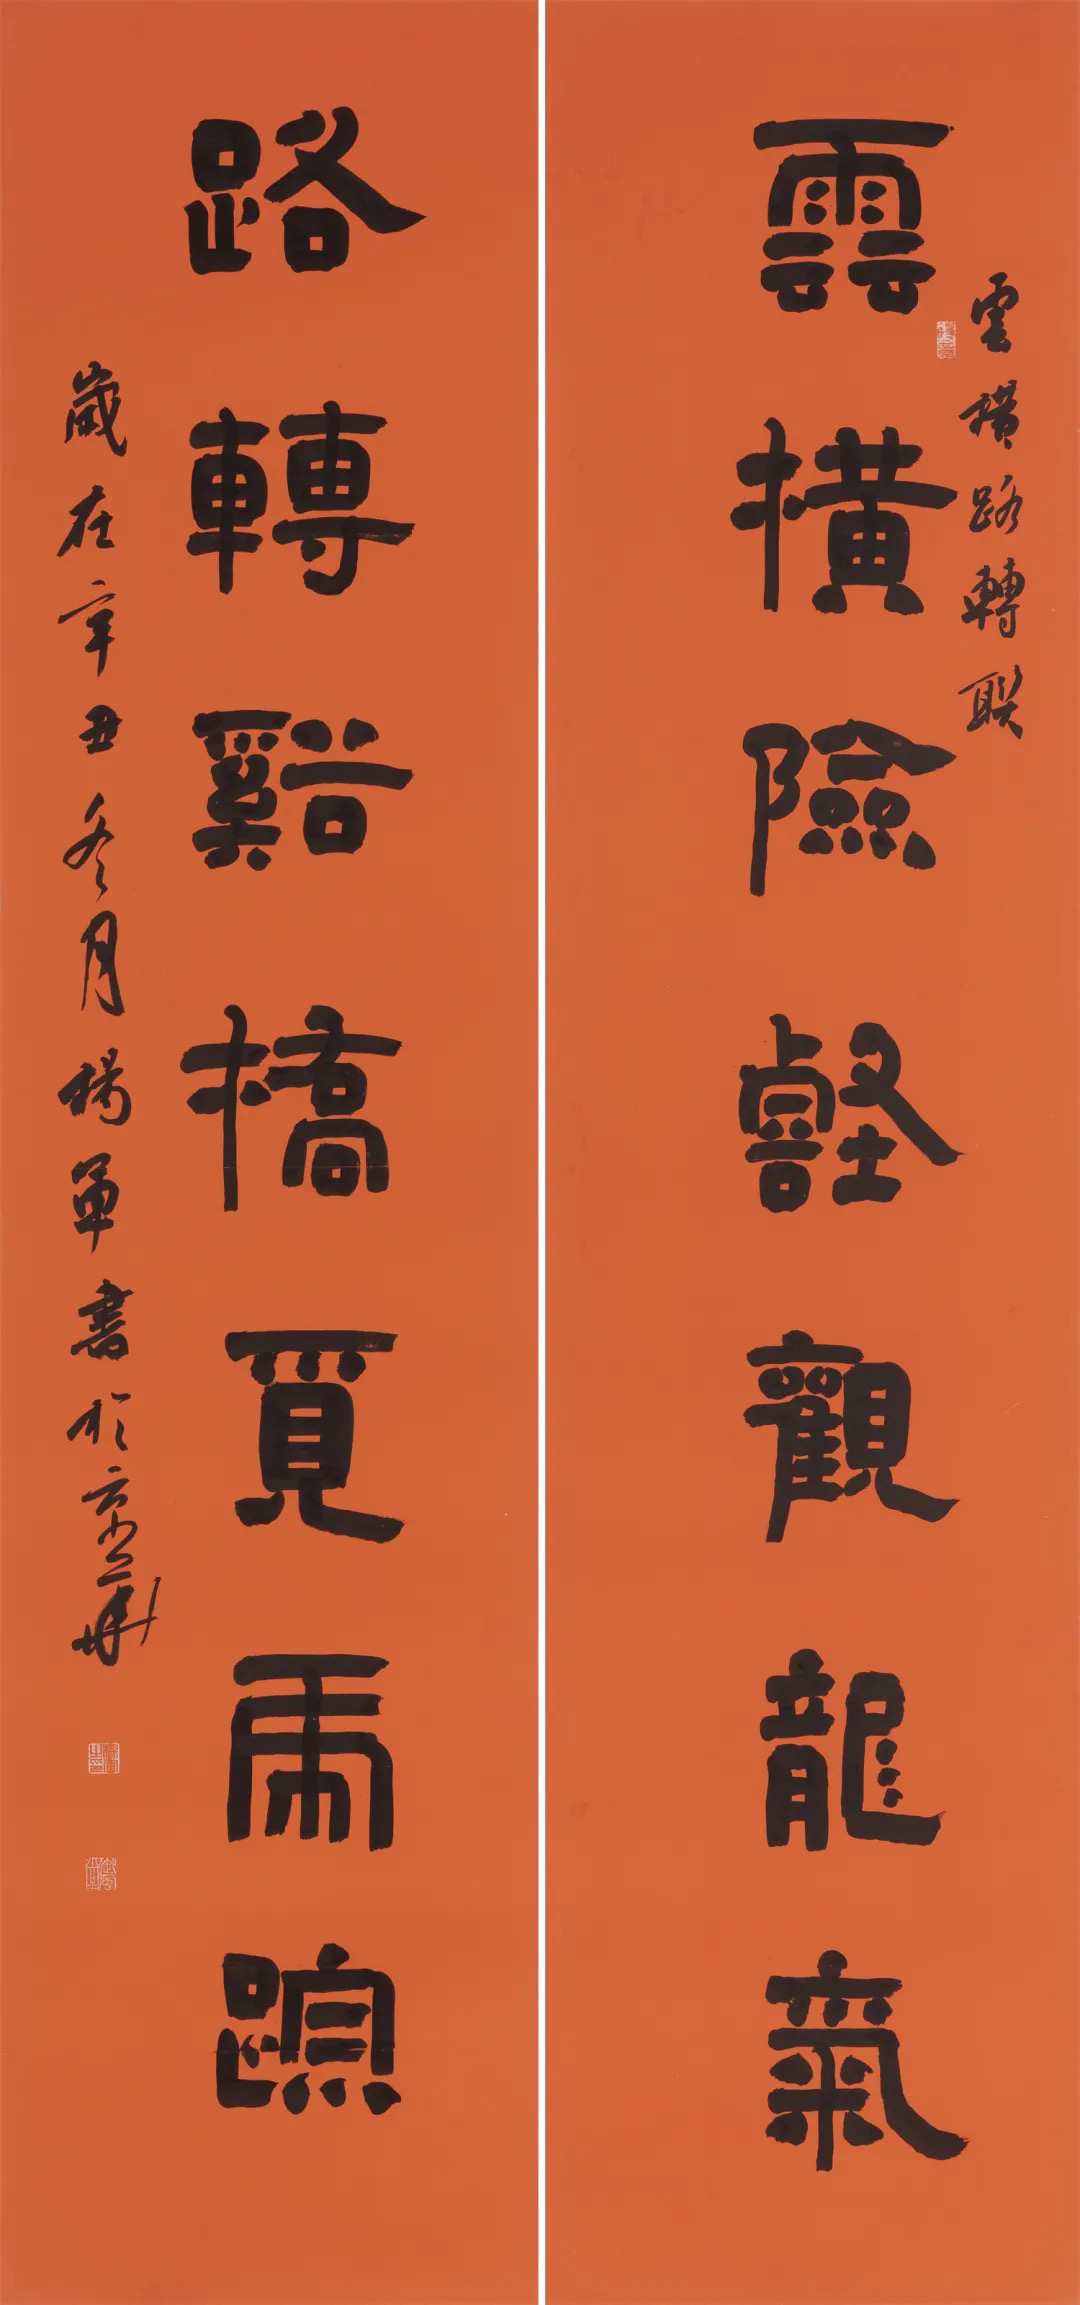 雲橫路轉聯
雲橫險壑觀龍氣
路轉谿橋覓虎踪
歲在辛丑冬月楊軍書於京華